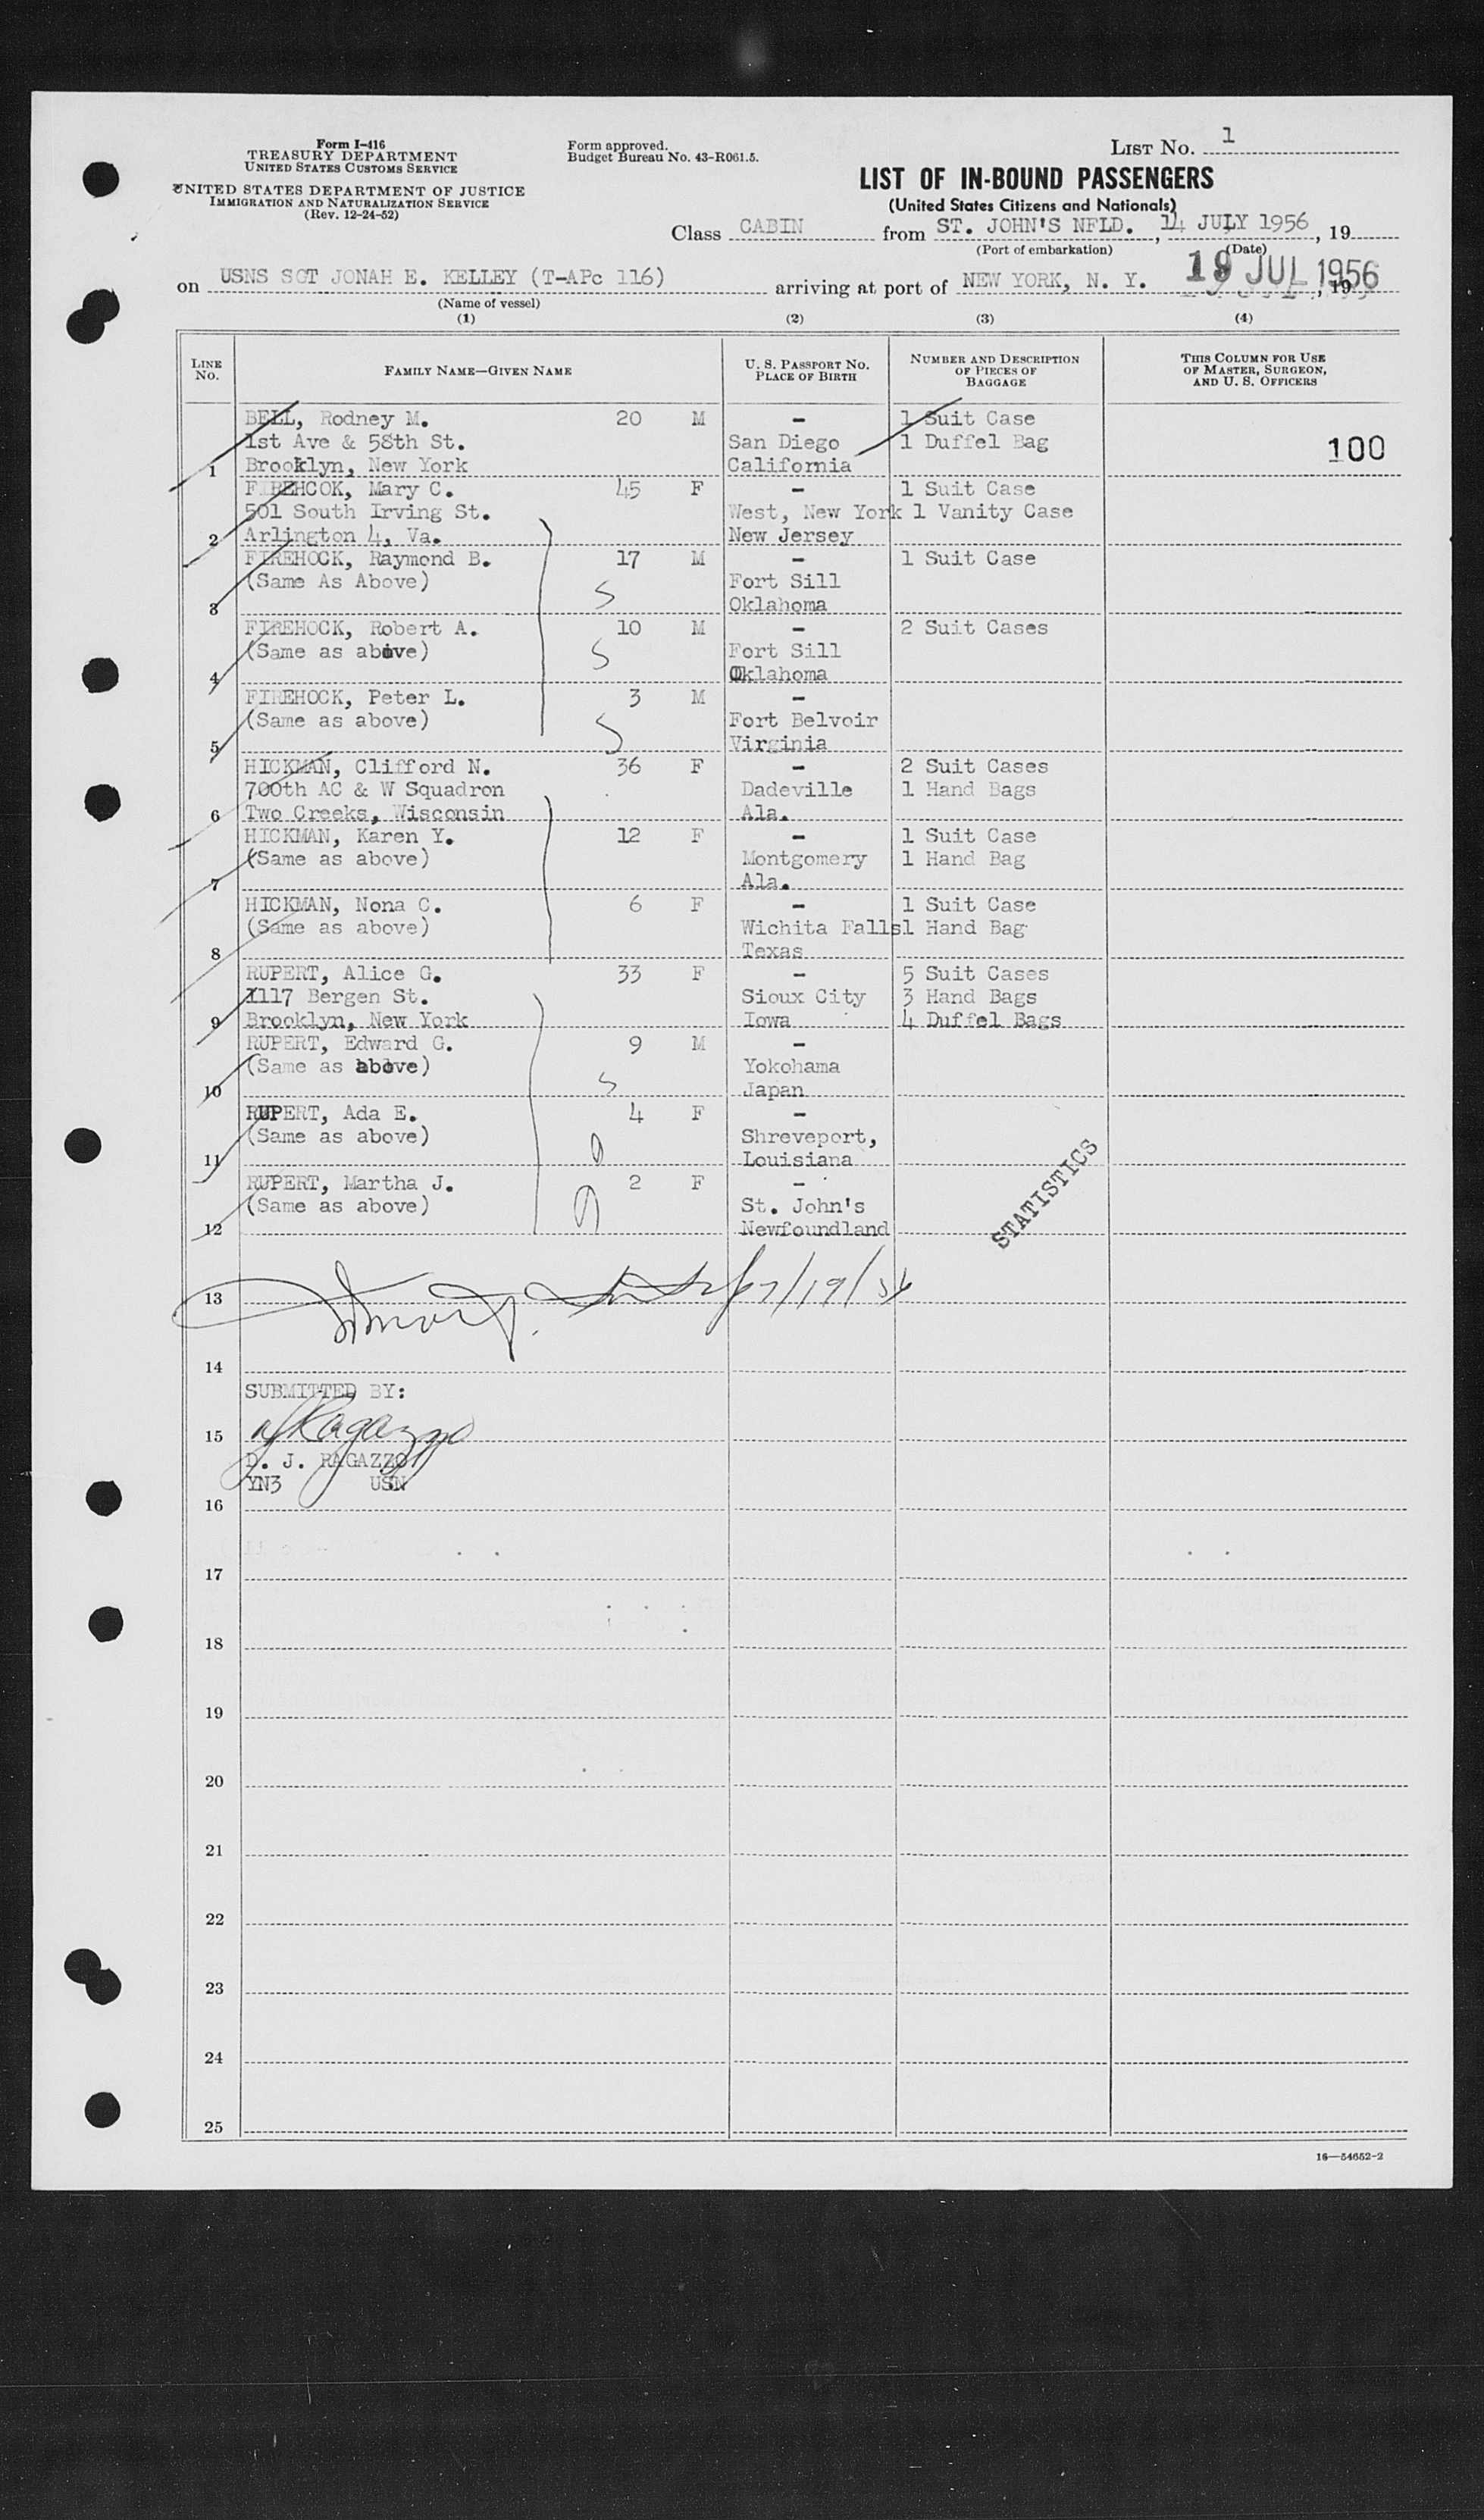 Form I-416
TREASURY DEPARTMENT
UNITED STATES CUSTOMS SERVICE
UNITED STATES DEPARTMENT OF JUSTICE
IMMIGRATION AND NATURALIZATION SERVICE
(Rev. 12-24-52)
Form approved.
Budget Bureau No. 43-R061.5.
LIST NO. 1
LIST OF IN-BOUND PASSENGERS
(United States Citizens and Nationals)
Class CABIN from ST. JOHN'S NFLD. , 14 JULY 1956 , 19
(Port of embarkation) (Date)
on USNS SGT JONAH E. KELLEY (T-APc 116) arriving at port of NEW YORK, N. Y. 19 JUL 1956 , 19
(Name of vessel)
(1) (2) (3) (4)
LINE NO. FAMILY NAME—GIVEN NAME U. S. PASSPORT NO. PLACE OF BIRTH NUMBER AND DESCRIPTION OF PIECES OF BAGGAGE THIS COLUMN FOR USE OF MASTER, SURGEON, AND U. S. OFFICERS
BELL, Rodney M. 20 M - 1 Suit Case
1st Ave & 58th St. San Diego 1 Duffel Bag 100
1 Brooklyn, New York California
FIREHCOK, Mary C. 45 F - 1 Suit Case
501 South Irving St. West, New York 1 Vanity Case
2 Arlington 4, Va. New Jersey
FIREHOCK, Raymond B. 17 M - 1 Suit Case
(Same As Above) S Fort Sill
3 Oklahoma
FIREHOCK, Robert A. 10 M - 2 Suit Cases
(Same as above) S Fort Sill
4 Oklahoma
FIREHOCK, Peter L. 3 M -
(Same as above) S Fort Belvoir
5 Virginia
HICKMAN, Clifford N. 36 F - 2 Suit Cases
700th AC & W Squadron Dadeville 1 Hand Bags
6 Two Creeks, Wisconsin Ala.
HICKMAN, Karen Y. 12 F - 1 Suit Case
(Same as above) Montgomery 1 Hand Bag
7 Ala.
HICKMAN, Nona C. 6 F - 1 Suit Case
(Same as above) Wichita Falls 1 Hand Bag
8 Texas
RUPERT, Alice G. 33 F - 5 Suit Cases
1117 Bergen St. Sioux City 3 Hand Bags
9 Brooklyn, New York Iowa 4 Duffel Bags
RUPERT, Edward G. 9 M -
(Same as above) S Yokohama
10 Japan
RUPERT, Ada E. 4 F -
(Same as above) Shreveport,
11 Louisiana
RUPERT, Martha J. 2 F -
(Same as above) St. John's
12 Newfoundland
STATISTICS
13 7/19/56
14
SUBMITTED BY:
15 Ragazzo
D. J. RAGAZZO
YN3 USN
16
17
18
19
20
21
22
23
24
25
16—54652-2